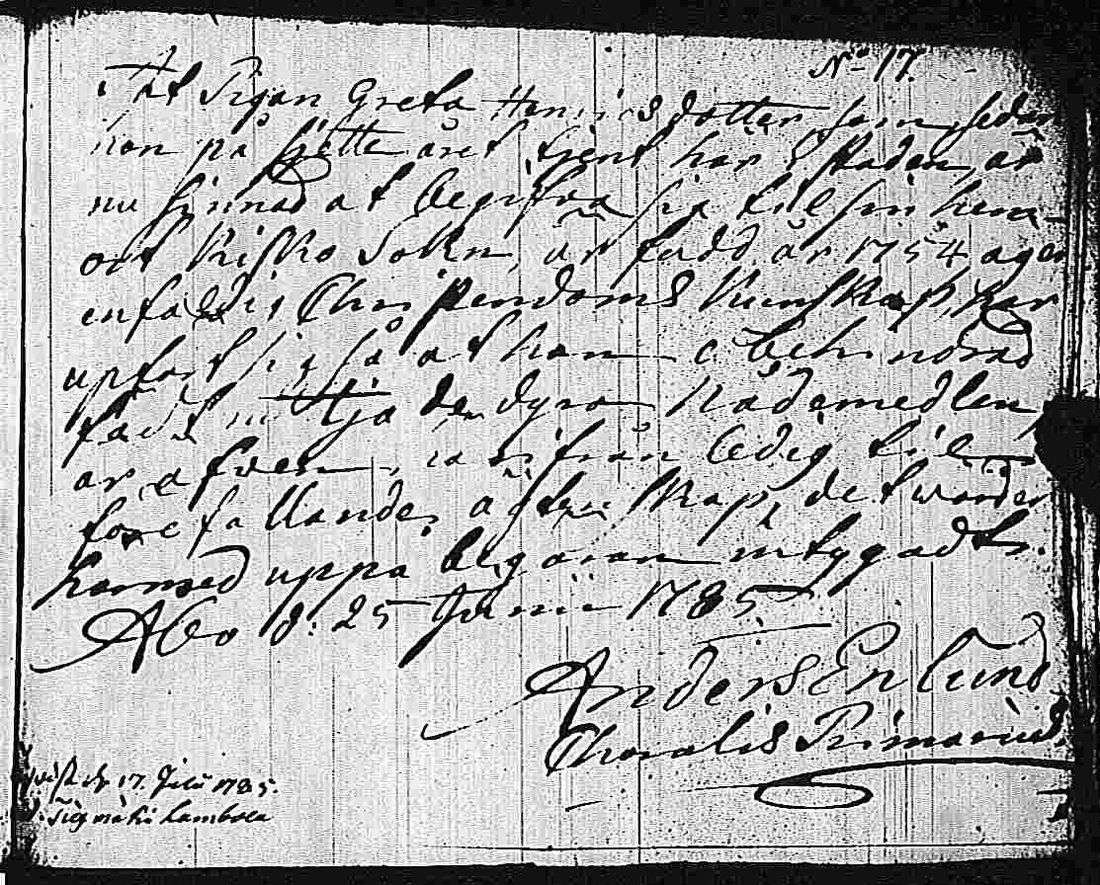 No 17.
At Pigan Greta Henricsdotter som, sedan
hon på sjette året tjent här i Staden, är
nu sinnad at begifva sig til sin hem-
ort Kisko Sokn, är född år 1754 ägen
enfaldig Christendoms Kunskap, har
upfört sig så at hon obehindrad
fådt nyttja de dyra Nådemedlen,
är äfven, härifrån ledig til
förefallande ägtenskap, det warder
härmed uppå begäran intygadt.
Åbo d: 25 Junii 1785
Anders Enlund
Choralis Primarius.
d 17. Julii 1785.
Lambola